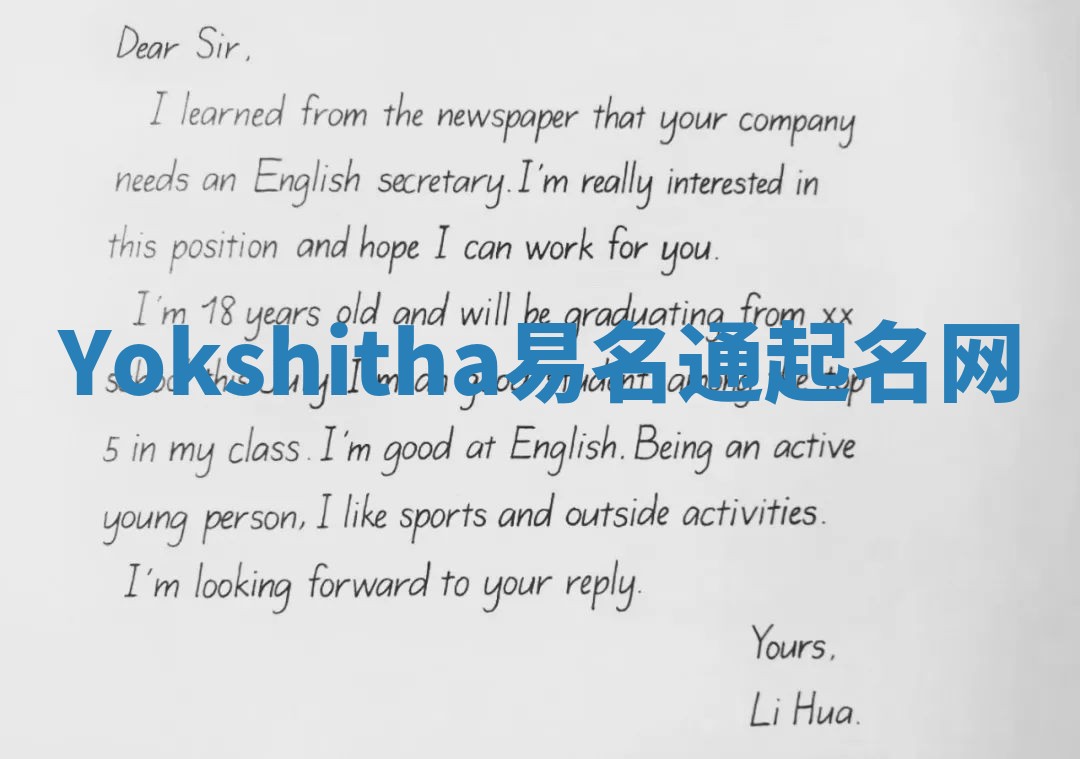 Dear Sir,
I learned from the newspaper that your company
needs an English secretary. I'm really interested in
this position and hope I can work for you.
I'm 18 years old and will be graduating from xx
Yokshitha易名通起名网
school this July. I'm an good student among the top
5 in my class. I'm good at English. Being an active
young person, I like sports and outside activities.
I'm looking forward to your reply.
Yours,
Li Hua.